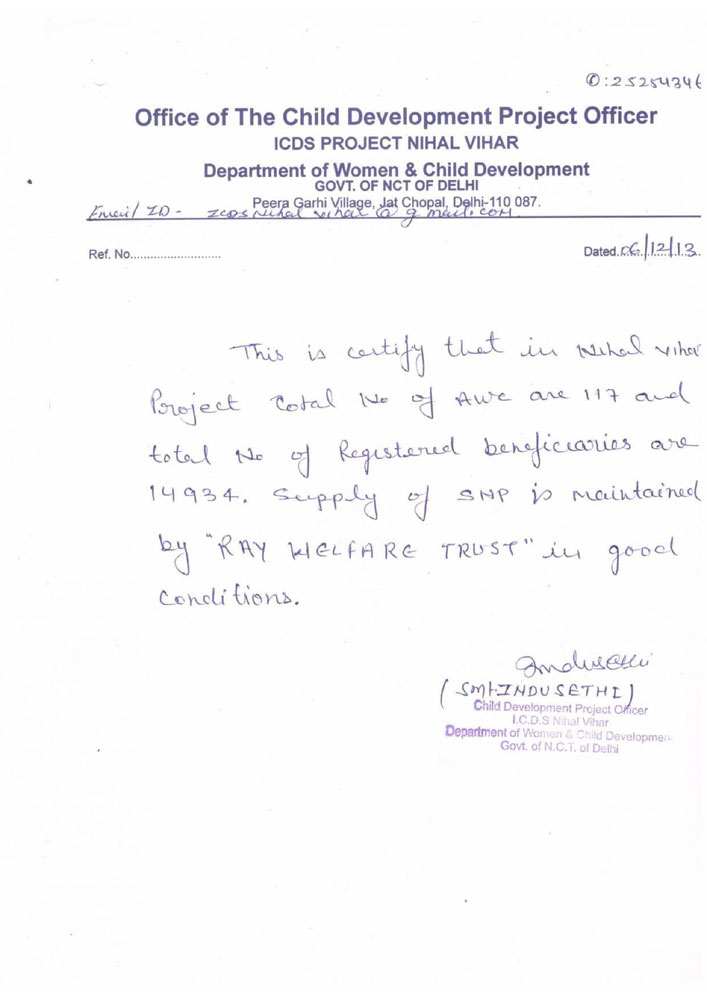 ✆:25254346
Office of The Child Development Project Officer
ICDS PROJECT NIHAL VIHAR
Department of Women & Child Development
GOVT. OF NCT OF DELHI
Peera Garhi Village, Jat Chopal, Delhi-110 087.
Email ID - icdsnihal vihar @ gmail.com
Ref. No...........................
Dated.06/12/13.
This is certify that in Nihal vihar
Project total No of AWC are 117 and
total No of Registered beneficiaries are
14934. Supply of SNP is maintained
by "RAY WELFARE TRUST" in good
Conditions.
Indu Sethi
(SMt. INDU SETHI)
Child Development Project Officer
I.C.D.S Nihal Vihar
Department of Women & Child Developmen
Govt. of N.C.T. of Delhi